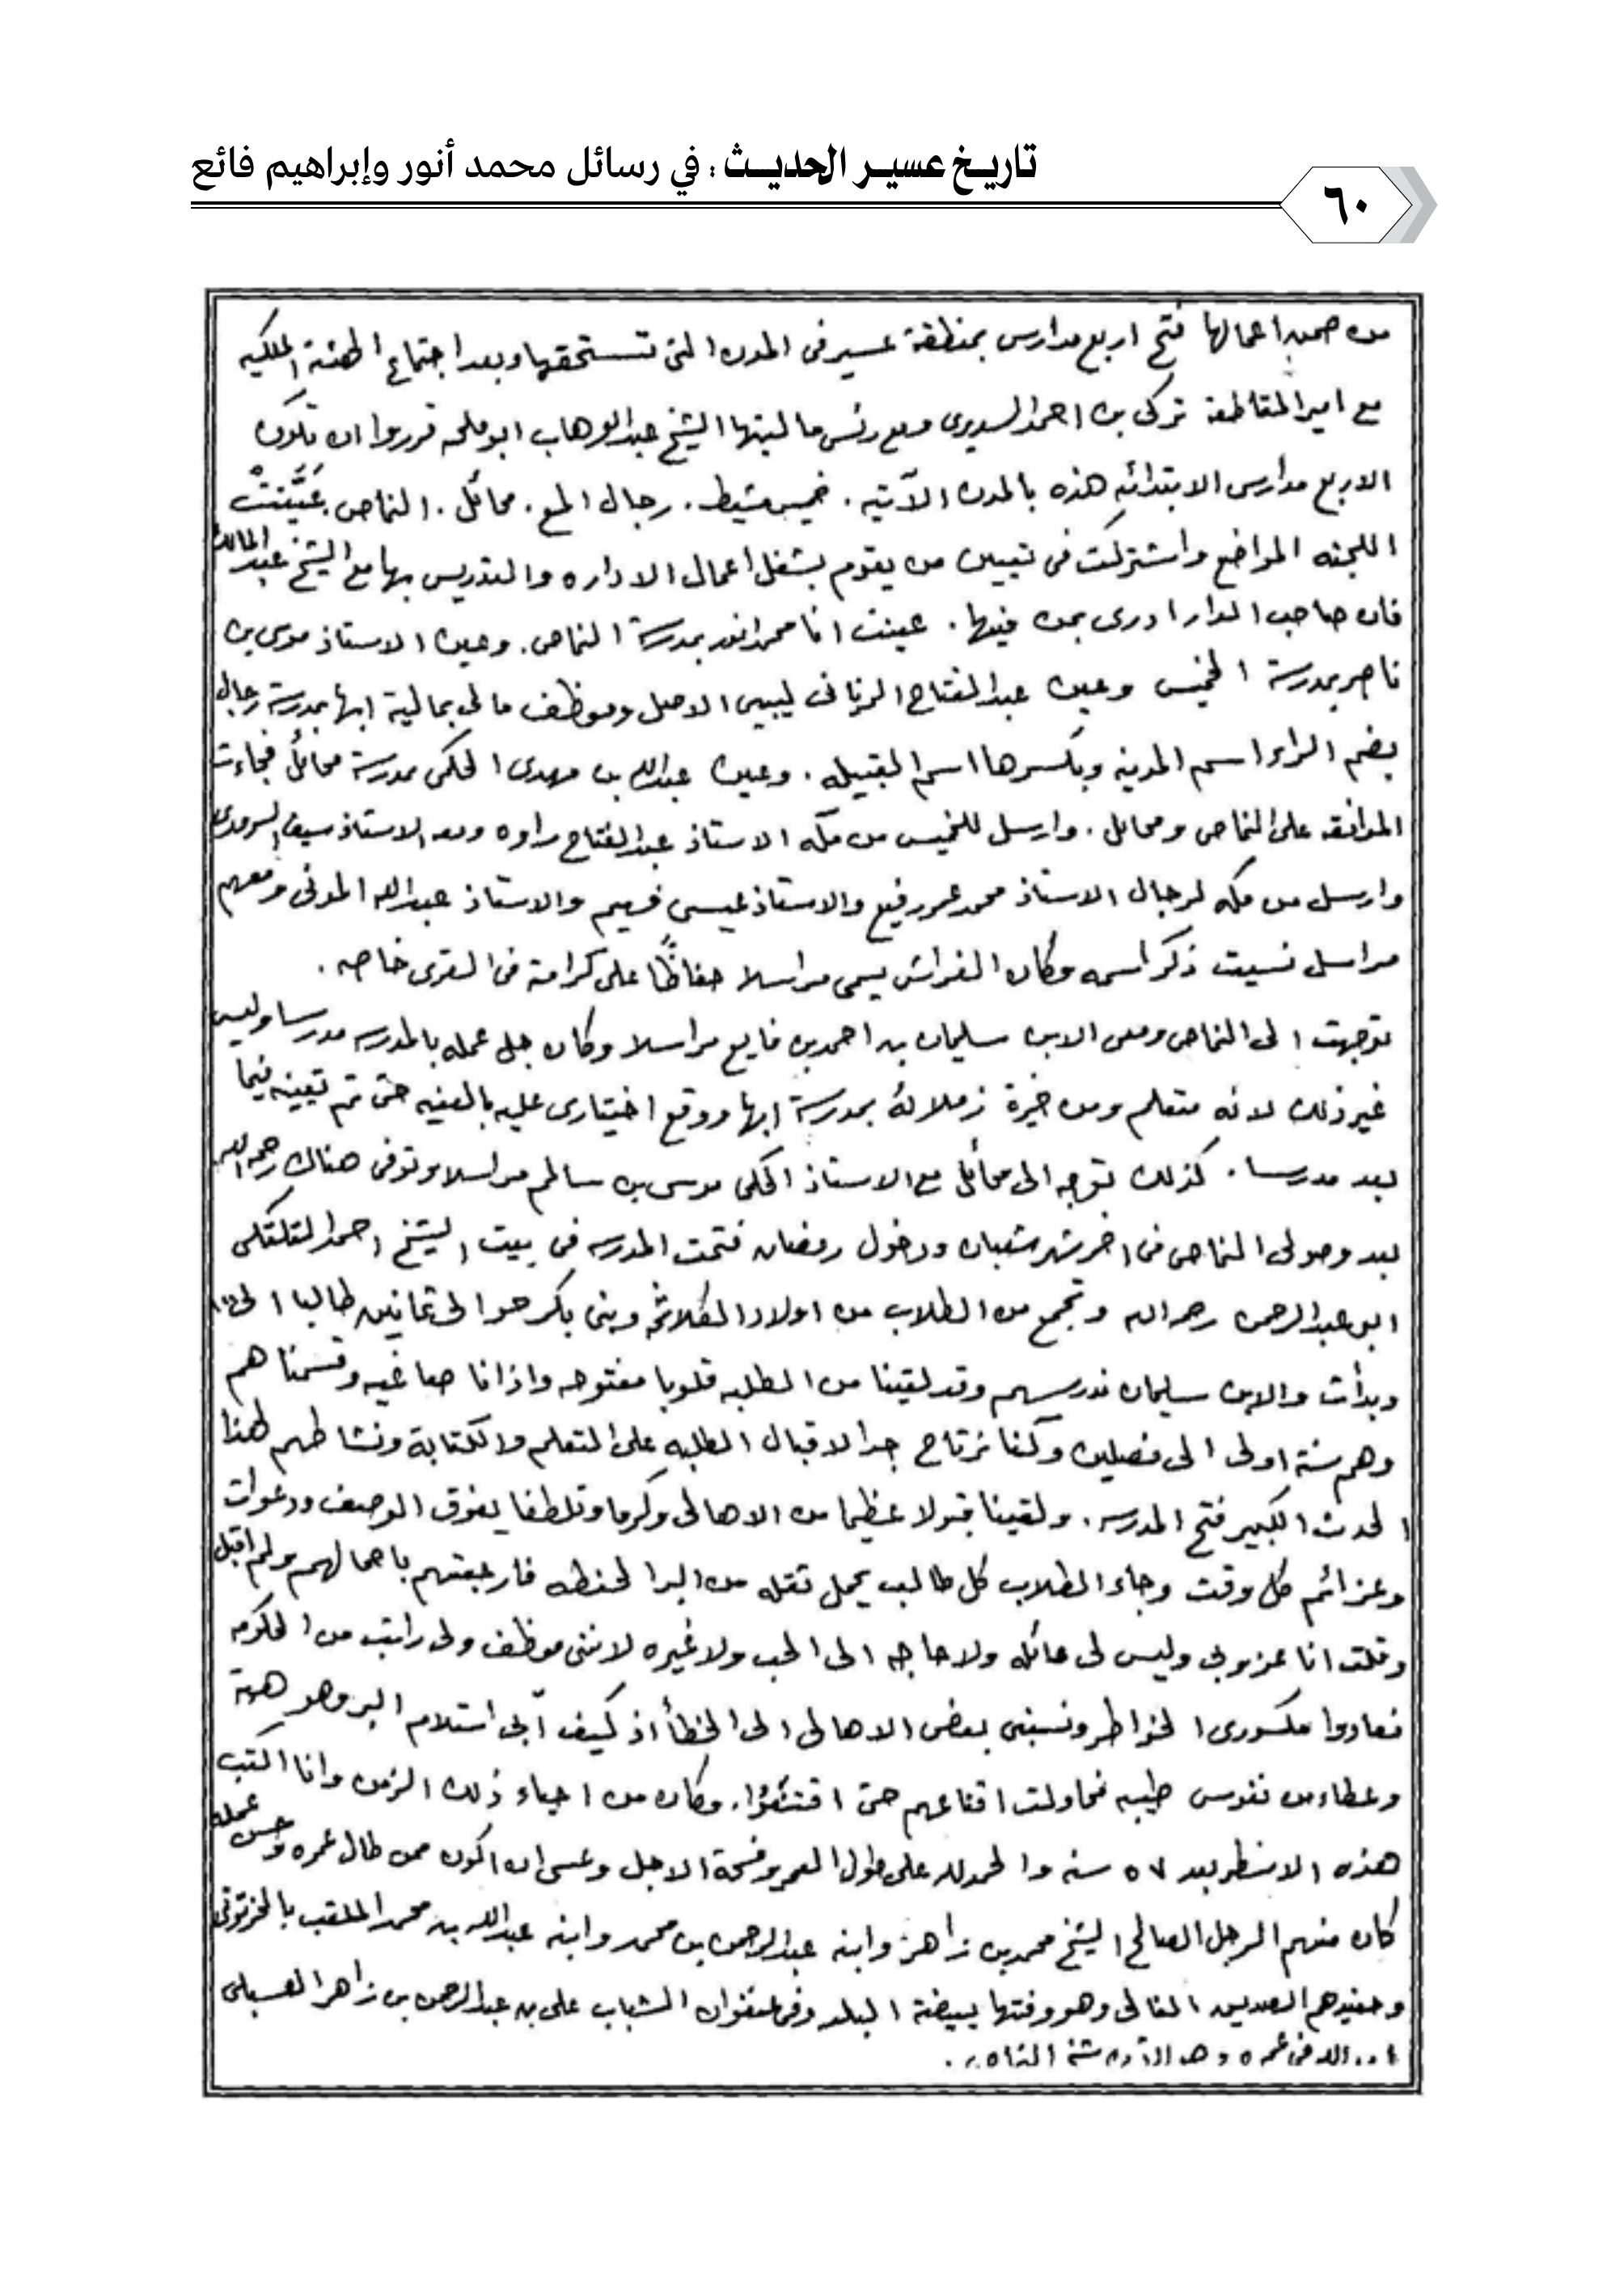 تاريخ عسير الحديث : في رسائل محمد أنور وإبراهيم فائع
٦٠
من ضمن اعمالها فتح اربع مدارس بمنطقة عسير فى المدن التى تستحقها وبعد اجتماع الهيئة الملكيه
مع امير المقاطعة تركى بن احمد السديرى ومع رئس ماليتها الشيخ عبدالوهاب ابو ملحه قرروا ان تكون
الاربع مدارس الابتدائيه هذه بالمدن الآتيه . خميس مشيط . رجال المع . محائل . النماص . عَيَّنتْ
اللجنه المواضع واشتركت فى تعيين من يقوم بشغل اعمال الاداره والتدريس بها مع الشيخ عبدالمالك
فان صاحب الدار ادرى بمن فيها . عينت انا محمد انور بمدرسة النماص . وعين الاستاذ موسى بن
ناصر بمدرسة الخميس وعين عبدالفتاح الزناتى ليبيى الاصل وموظف مالى بمالية ابها بمدرسة رجال
بضم الراء اسم المدينه وبكسرها اسم القبيله . وعين عبدالله بن مهدى الحكمى بمدرسة محائل فجاءت
الموافقه على النماص ومحايل . وارسل للخميس من مكه الاستاذ عبدالفتاح راوه ومعه الاستاذ سيف
وارسل من مكه لرجال الاستاذ محمد عمر رفيع والاستاذ عيسى فهيم والاستاذ عبدالله المونى ومعهم
مراسل نسيت ذكر اسمه وكان الفراش يسمى مراسلا حفاظًا على كرامة فى القرى خاصه .
توجهت الى النماص ومعى الابن سليمان بن احمد بن فايع مراسلا وكان جل عمله بالمدرسه مدرسا وليس
غير ذلك لانه متعلم ومن خيرة زملائه بمدرسة ابها ووقع اختيارى عليه بالعينه حتى تم تعيينه فيما
بعد مدرسا . كذلك توجه الى محائل مع الاستاذ الحكمى موسى بن سالم مراسلا وتوفى هناك رحمه الله
بعد وصولى النماص فى اخر شهر شعبان ودخول رمضان فتحت المدرسه فى بيت الشيخ احمد
ابو عبدالرحمن رحمه الله وتجمع من الطلاب من اولاد الكلاثمه وبنى بكر حوالى ثمانين طالبا
وبدأت والابن سليمان ندرسهم وقد لقينا من الطلبه قلوبا مفتوحه واذانا صاغيه وقسمناهم
وهم سنة اولى الى فصلين وكنا نرتاح جدا لاقبال الطلبه على التعلم والكتابة ونشاطهم لهذا
الحدث الكبير فتح المدرسه . ولقينا قبولا عظيما من الاهالى وكرما وتلطفا يفوق الوصف ودعوات
وعزائم كل وقت وجاء الطلاب كل طالب يحمل ثقله من البر الحنطه فارجعتهم باحمالهم ولم اقبل
وقلت انا عزوبى وليس لى عائله ولا حاجه الى الحب ولا غيره لاننى موظف ولى راتب من الحكومه
فعادوا مكسورى الخواطر ونسبنى بعض الاهالى الى الخطأ اذ كيف آبى استلام البر وهو هبة
وعطاء من نفوس طيبه فحاولت اقناعهم حتى اقتنعوا . وكان من احياء ذلك الزمن وانا اكتب
هذه الاسطر بعد ٥٧ سنه والحمد لله على طول العمر وفسحة الاجل وعسى ان اكون ممن طال عمره وحسن عمله
كان منهم الرجل الصالح الشيخ محمد بن زاهر وابنه عبدالرحمن بن محمد وابنه عبدالله بن محمد الملقب
وحفيدهم الصديق الغالى وهو وقتها بيضة البلد وفى عنفوان الشباب على بن عبدالرحمن بن زاهر العسبلى